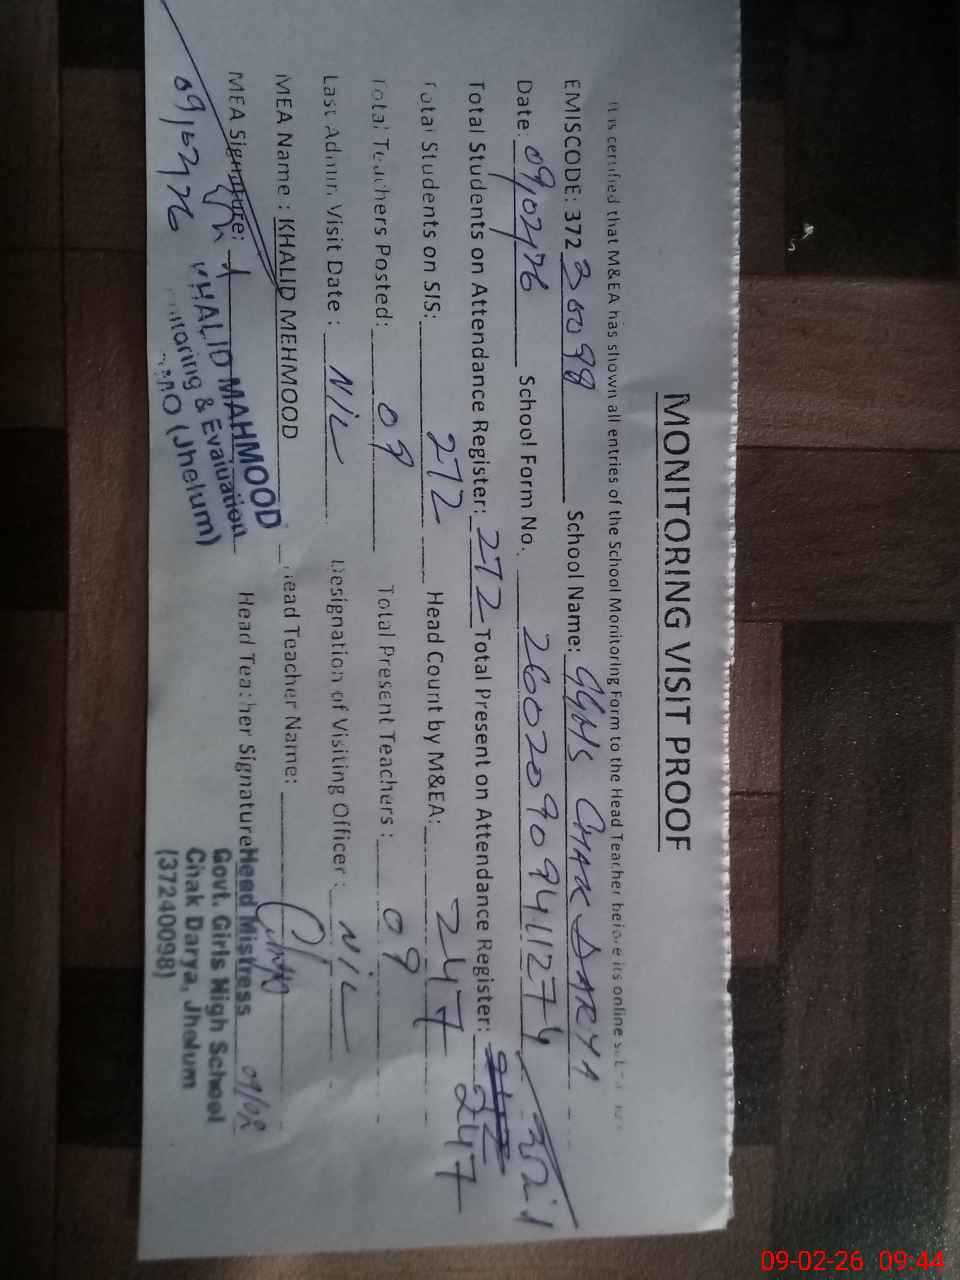 MONITORING VISIT PROOF
It is certified that M&EA has shown all entries of the School Monitoring Form to the Head Teacher before its online
EMISCODE: 372 School Name: GGHS CHAK DARYA
Date: 09/02/26 School Form No. 
Total Students on Attendance Register: 272 Total Present on Attendance Register: 247
Total Students on SIS: 272 Head Count by M&EA: 247
Total Teachers Posted: 09 Total Present Teachers: 09
Last Admin Visit Date: NIL Designation of Visiting Officer: NIL
MEA Name: KHALID MEHMOOD Head Teacher Name:
MEA Signature: Head Teacher Signature
09/02/26
KHALID MAHMOOD
Monitoring & Evaluation
(Jhelum)
Head Mistress
Govt. Girls High School
Chak Darya, Jhelum
(37240098)
09-02-26 09:44